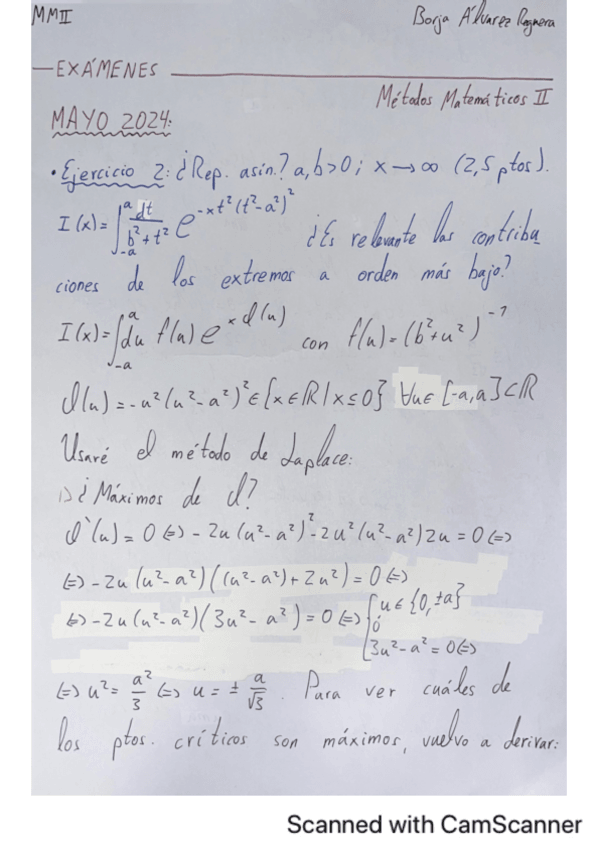 MMII Borja Álvarez Reguera
EXÁMENES
Métodos Matemáticos II
MAYO 2024:
• Ejercicio 2: ¿Rep. asin.? a, b > 0 ; x → ∞ (2,5 ptos).
I(x) = ∫_{-a}^{a} dt/(b²+t²) e^{-xt²(t²-a²)²} ¿Es relevante las contribu
ciones de los extremos a orden más bajo?
I(x) = ∫_{-a}^{a} du f(u) e^{x ϕ(u)} con f(u) = (b²+u²)^{-1}
ϕ(u) = -u²(u²-a²)² ∈ {x ∈ ℝ | x ≤ 0} ∀u ∈ [-a, a] ⊂ ℝ
Usaré el método de Laplace:
1) ¿Máximos de ϕ?
ϕ'(u) = 0 ⇔ -2u(u²-a²)² - 2u²(u²-a²)2u = 0 ⇔
⇔ -2u(u²-a²)((u²-a²)+2u²) = 0 ⇔
⇔ -2u(u²-a²)(3u²-a²) = 0 ⇔ { u ∈ {0, ±a}
ó
3u²-a² = 0 ⇔
⇔ u² = a²/3 ⇔ u = ± a/√3 . Para ver cuáles de
los ptos. críticos son máximos, vuelvo a derivar:
Scanned with CamScanner